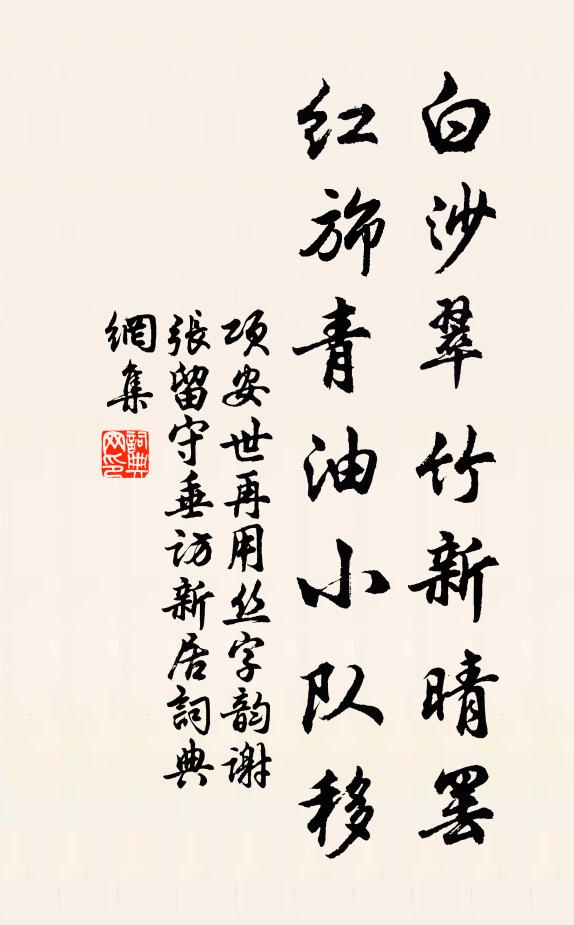 白沙翠竹新晴罢
红斾青油小队移
项安世再用丝字韵谢
張留守垂访新居詞典
網集
詞典
网印